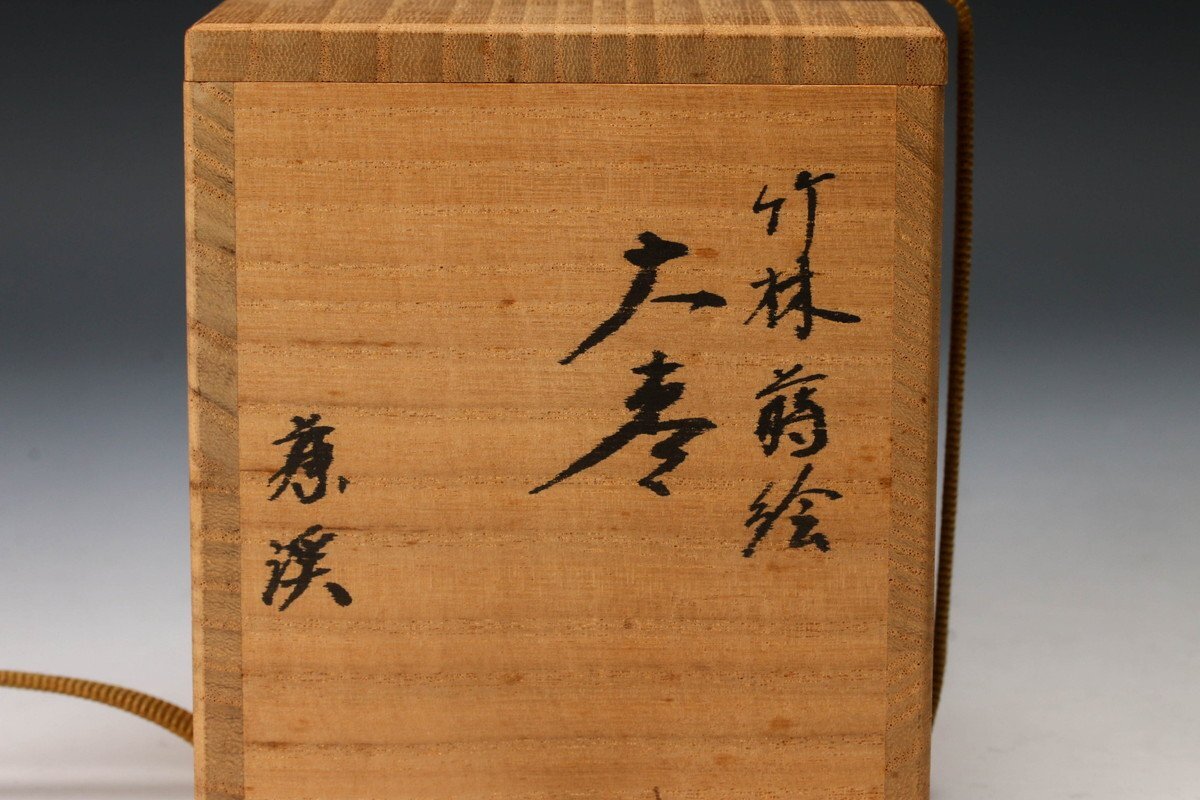 竹林蒔絵
大棗
渓